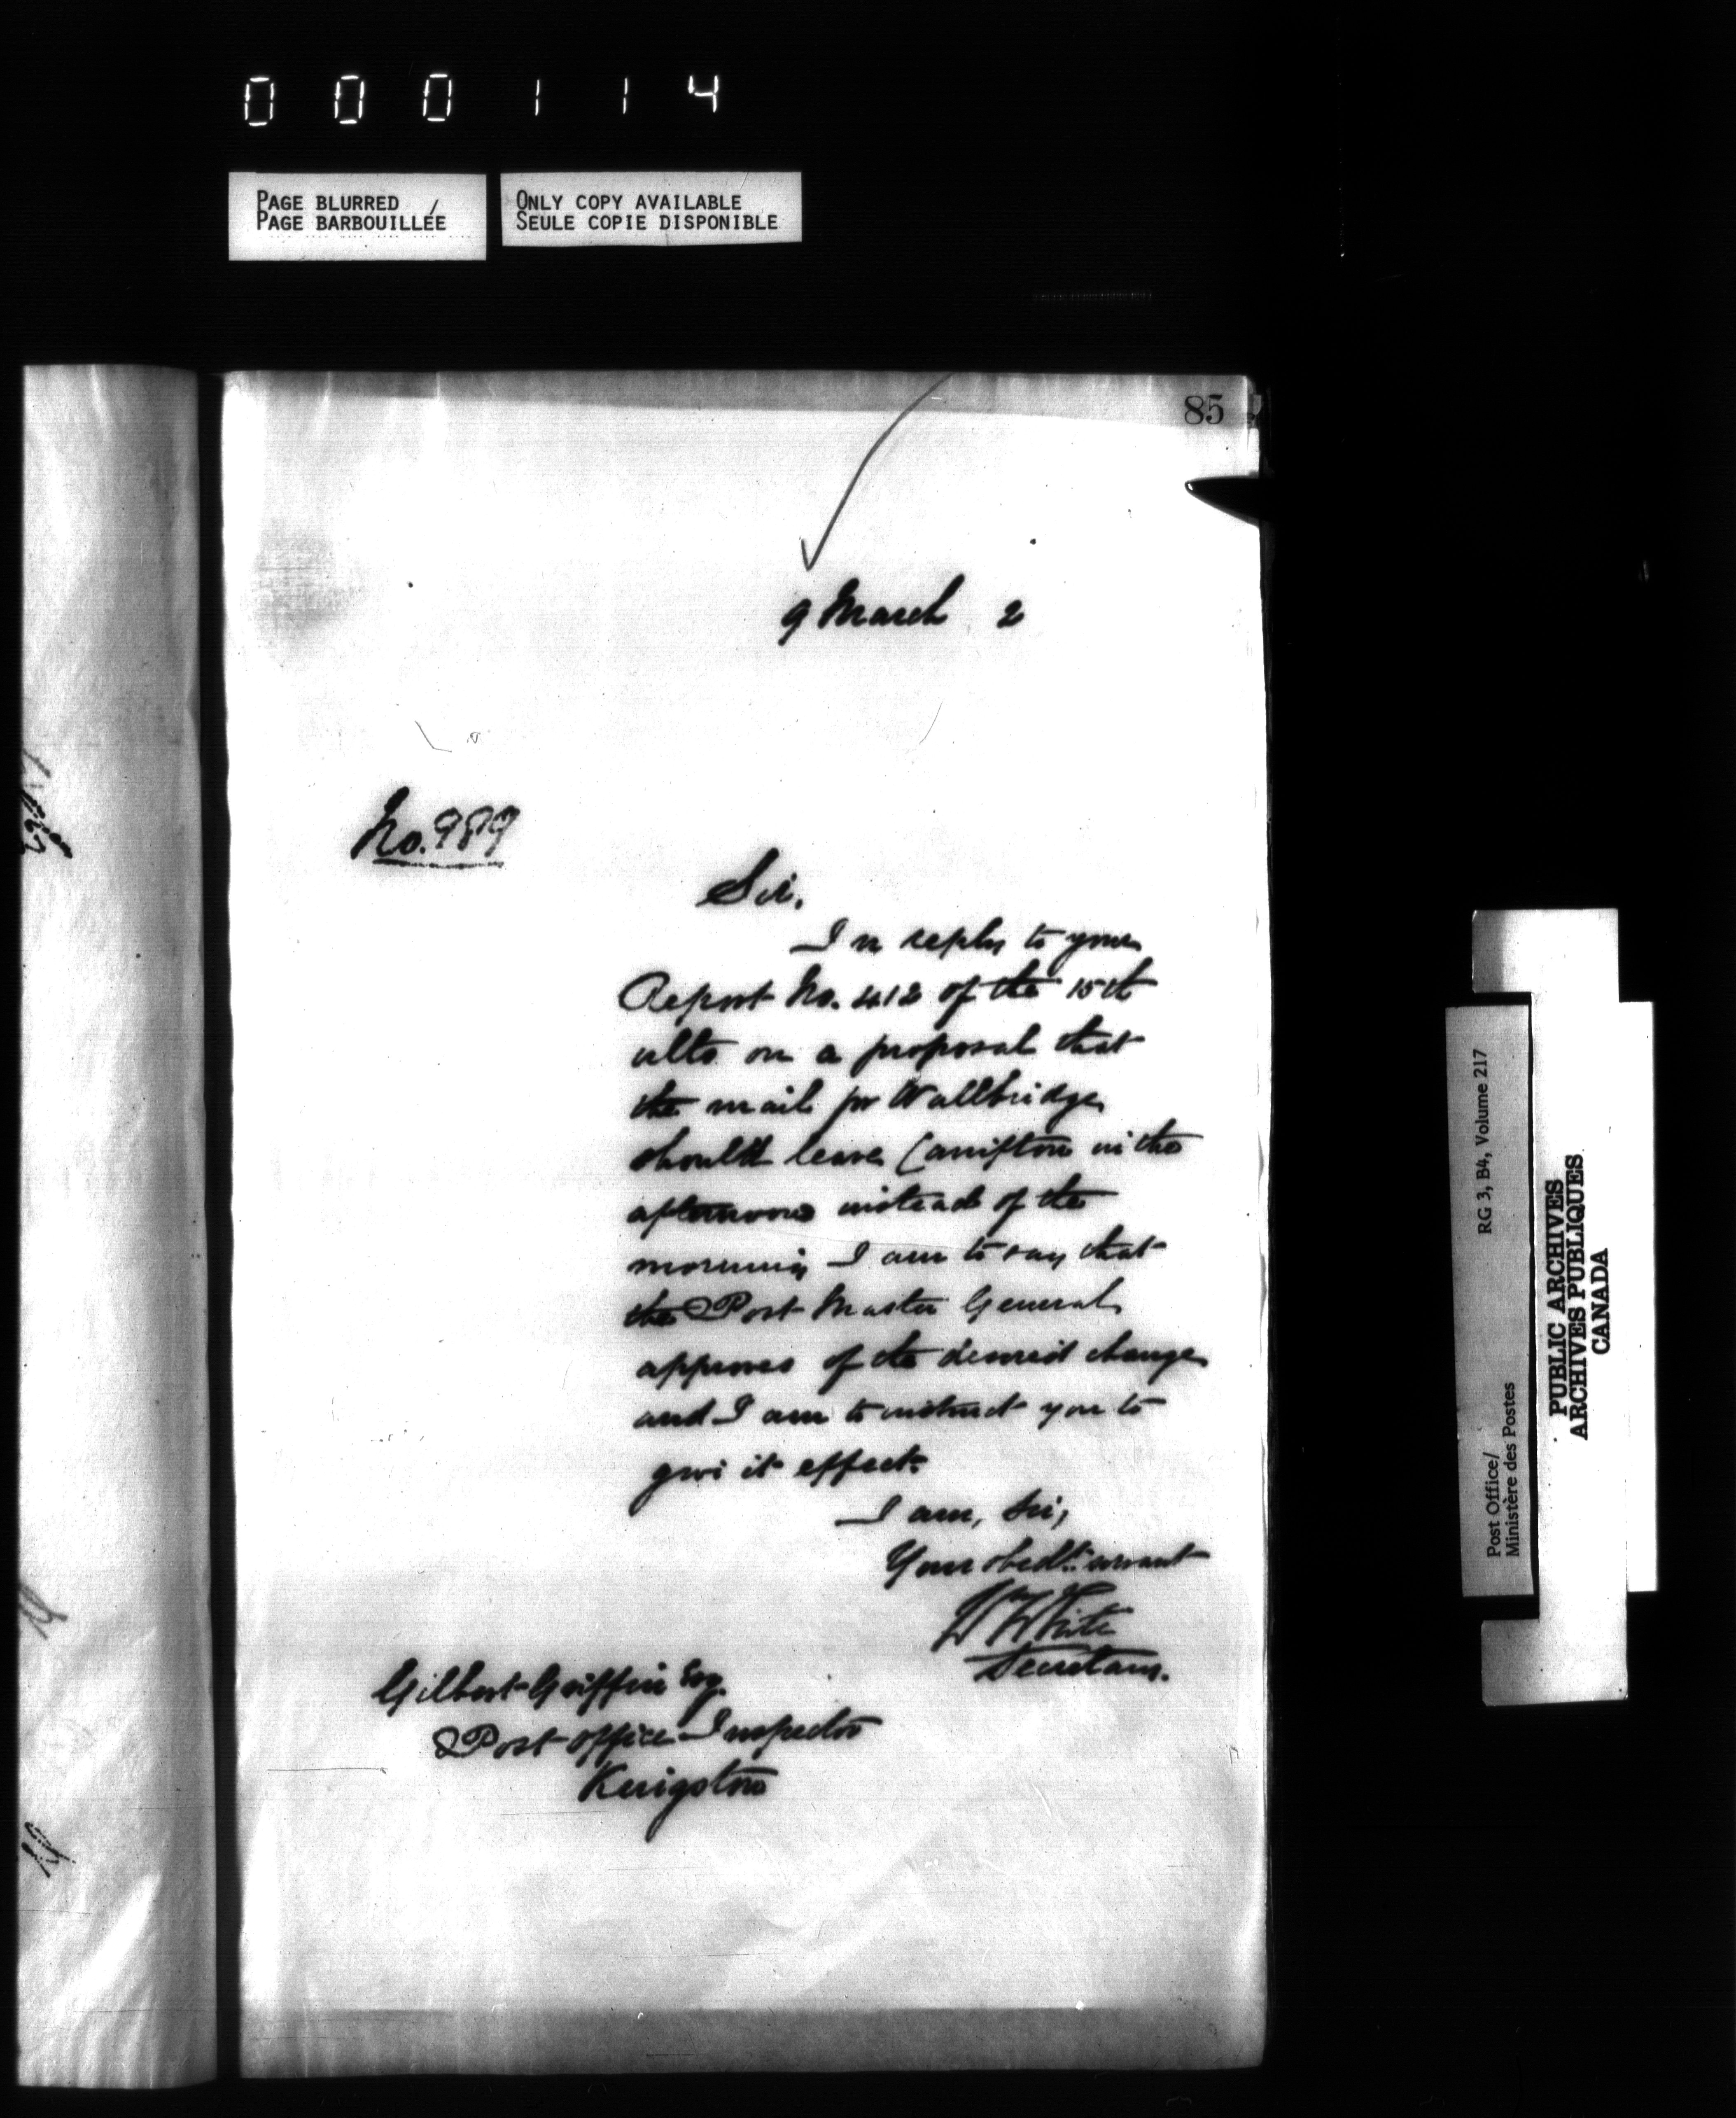 000114
PAGE BLURRED /
PAGE BARBOUILLÉE
ONLY COPY AVAILABLE
SEULE COPIE DISPONIBLE
85
9 March 2
No. 989
Sir,
In reply to your
Report No. 412 of the 15th
ulto on a proposal that
the mail for Wallbridge
should leave Canifton in the
afternoon instead of the
morning I am to say that
the Post Master General
approves of the desired change
and I am to instruct you to
give it effect.
I am, Sir,
Your obedt. servant
W White
Secretary.
Gilbert Griffin Esq.
Post Office Inspector
Kingston
Post Office/
Ministère des Postes
RG 3, B4, Volume 217
PUBLIC ARCHIVES
ARCHIVES PUBLIQUES
CANADA